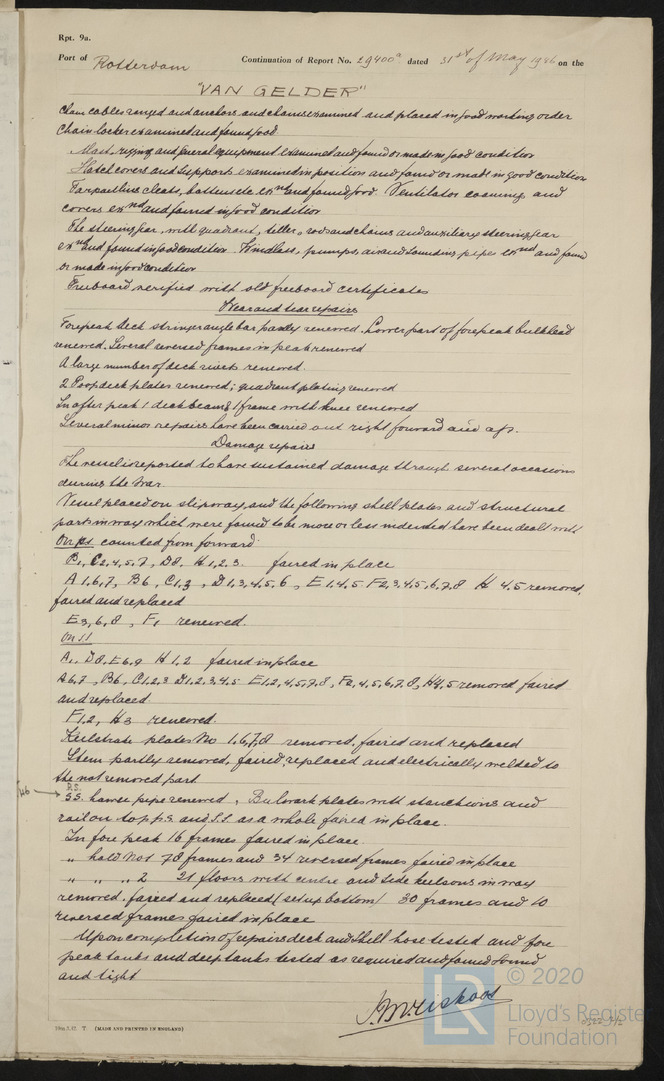 Rpt. 9a.
Port of Rotterdam Continuation of Report No. 29400a dated 31st of May 1946 on the
"VAN GELDER"
Chain cables ranged and anchors and chains examined and placed in good working order
Chain locker examined and found good
Mast, rigging and general equipment examined and found or made in good condition
Hatch covers and supports examined in position and found or made in good condition
Tarpaulins cleats, battens etc exnd and found good Ventilator coamings and
covers exnd and found in good condition
The steering gear, with quadrant, tiller, rods and chains and auxiliary steering gear
exnd and found in good condition. Windlass, pumps, air and sounding pipes exnd and found
or made in good condition
Freeboard verified with old freeboard certificates
Wear and tear repairs
Forepeak deck stringer angle bar partly renewed. Lower part of forepeak bulkhead
renewed. Several reversed frames in peak renewed
A large number of deck rivets renewed.
2 Poopdeck plates renewed; quadrant plating renewed
In after peak 1 deck beam & 1 frame with knee renewed
Several minor repairs have been carried out right forward and aft.
Damage repairs
The vessel is reported to have sustained damage through several occasions
during the War.
Vessel placed on slipway and the following shell plates and structural
parts in way which were found to be more or less indented have been dealt with
On ps counted from forward
B1, C2,4,5,7, D8, H1,2,3. faired in place
A 1,6,7, B6, C1,3, D1,3,4,5,6, E1,4,5 F2,3,4,5,6,7,8 H 4,5 removed,
faired and replaced
E3,6,8, F1 renewed.
On SS
A1, D8, E6,9 H1,2 faired in place
A6,7, B6, C1,2,3 D1,2,3,4,5 E1,2,4,5,7,8, F2,4,5,6,7,8, H4,5 removed faired
and replaced.
F1,2, H3 renewed.
Keelstrake plates No 1,6,7,8 removed, faired and replaced
Stem partly removed, faired, replaced and electrically welded to
the not removed part
P.S.
SS. hawse pipe renewed, Bulwark plates with stanchions and
rail on top p.s. and S.S. as a whole faired in place.
In fore peak 16 frames faired in place.
" hold No 1 78 frames and 34 reversed frames faired in place
" " " 2 21 floors with centre and side keelsons in way
removed, faired and replaced (set up bottom) 30 frames and 10
reversed frames faired in place
Upon completion of repairs deck and shell hose tested and fore
peak tanks and deep tanks tested as required and found sound
and tight
© 2020
Lloyd's Register
Foundation
LR
(MADE AND PRINTED IN ENGLAND)